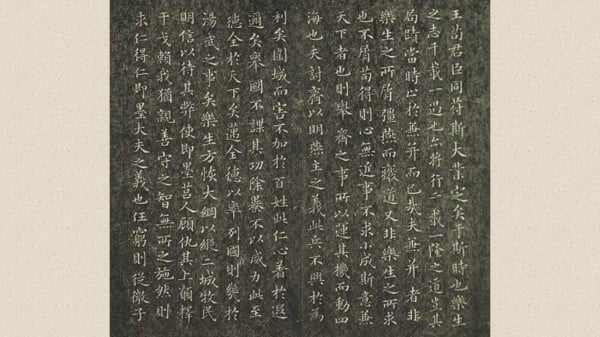 王苟君臣同符斯大業定矣于斯時也樂生
之志千載一遇也亦將行千載一隆之道豈其
局蹟當時止於兼并而已哉夫兼并者非
樂生之所屑彊燕而廢道又非樂生之所求
也不屑苟得則心無近事不求小成斯意兼
天下者也則舉齊之事所以運其機而動四
海也夫討齊以明燕主之義此兵不興於為
利矣圍城而害不加於百姓此仁心著於遐
邇矣舉國不謀其功除暴不以威力此至
德全於天下矣邁全德以率列國則幾於
湯武之事矣樂生方恢大綱以縱二城牧民
明信以待其弊使即墨莒人顧仇其上願釋
干戈賴我猶親善守之智無所之施然則
求仁得仁即墨大夫之義也任窮則從微子